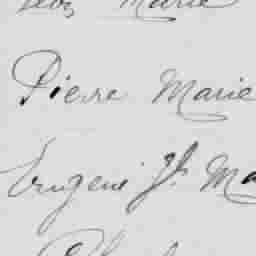 Léon Marie
Pierre Marie
Eugène Jh Ma